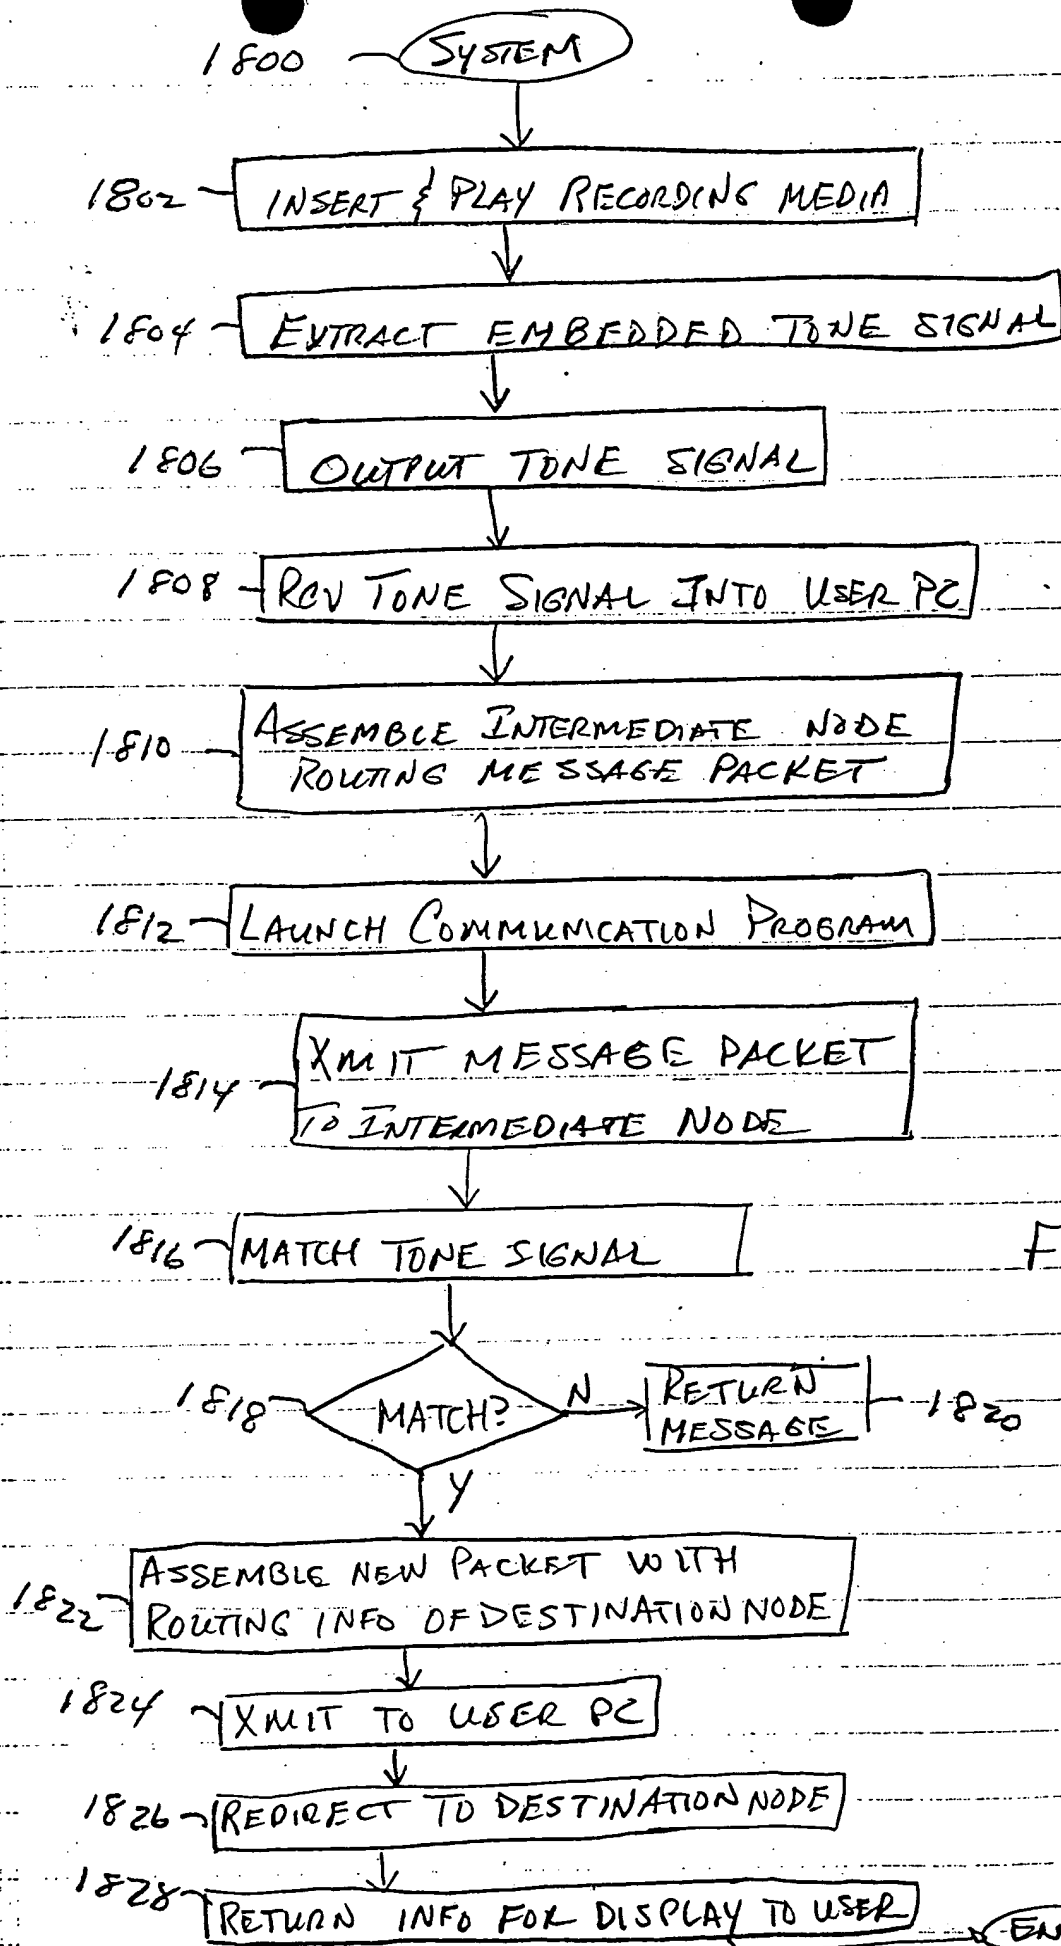 1800 SYSTEM
1802 INSERT & PLAY RECORDING MEDIA
1804 EXTRACT EMBEDDED TONE SIGNAL
1806 OUTPUT TONE SIGNAL
1808 RCV TONE SIGNAL INTO USER PC
1810 ASSEMBLE INTERMEDIATE NODE
ROUTING MESSAGE PACKET
1812 LAUNCH COMMUNICATION PROGRAM
1814 XMIT MESSAGE PACKET
TO INTERMEDIATE NODE
1816 MATCH TONE SIGNAL
F
1818 MATCH? N RETURN
MESSAGE 1820
Y
1822 ASSEMBLE NEW PACKET WITH
ROUTING INFO OF DESTINATION NODE
1824 XMIT TO USER PC
1826 REDIRECT TO DESTINATION NODE
1828 RETURN INFO FOR DISPLAY TO USER